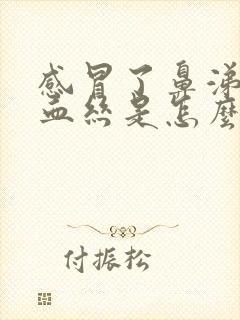 感冒了鼻涕
血丝是怎麽
付振松